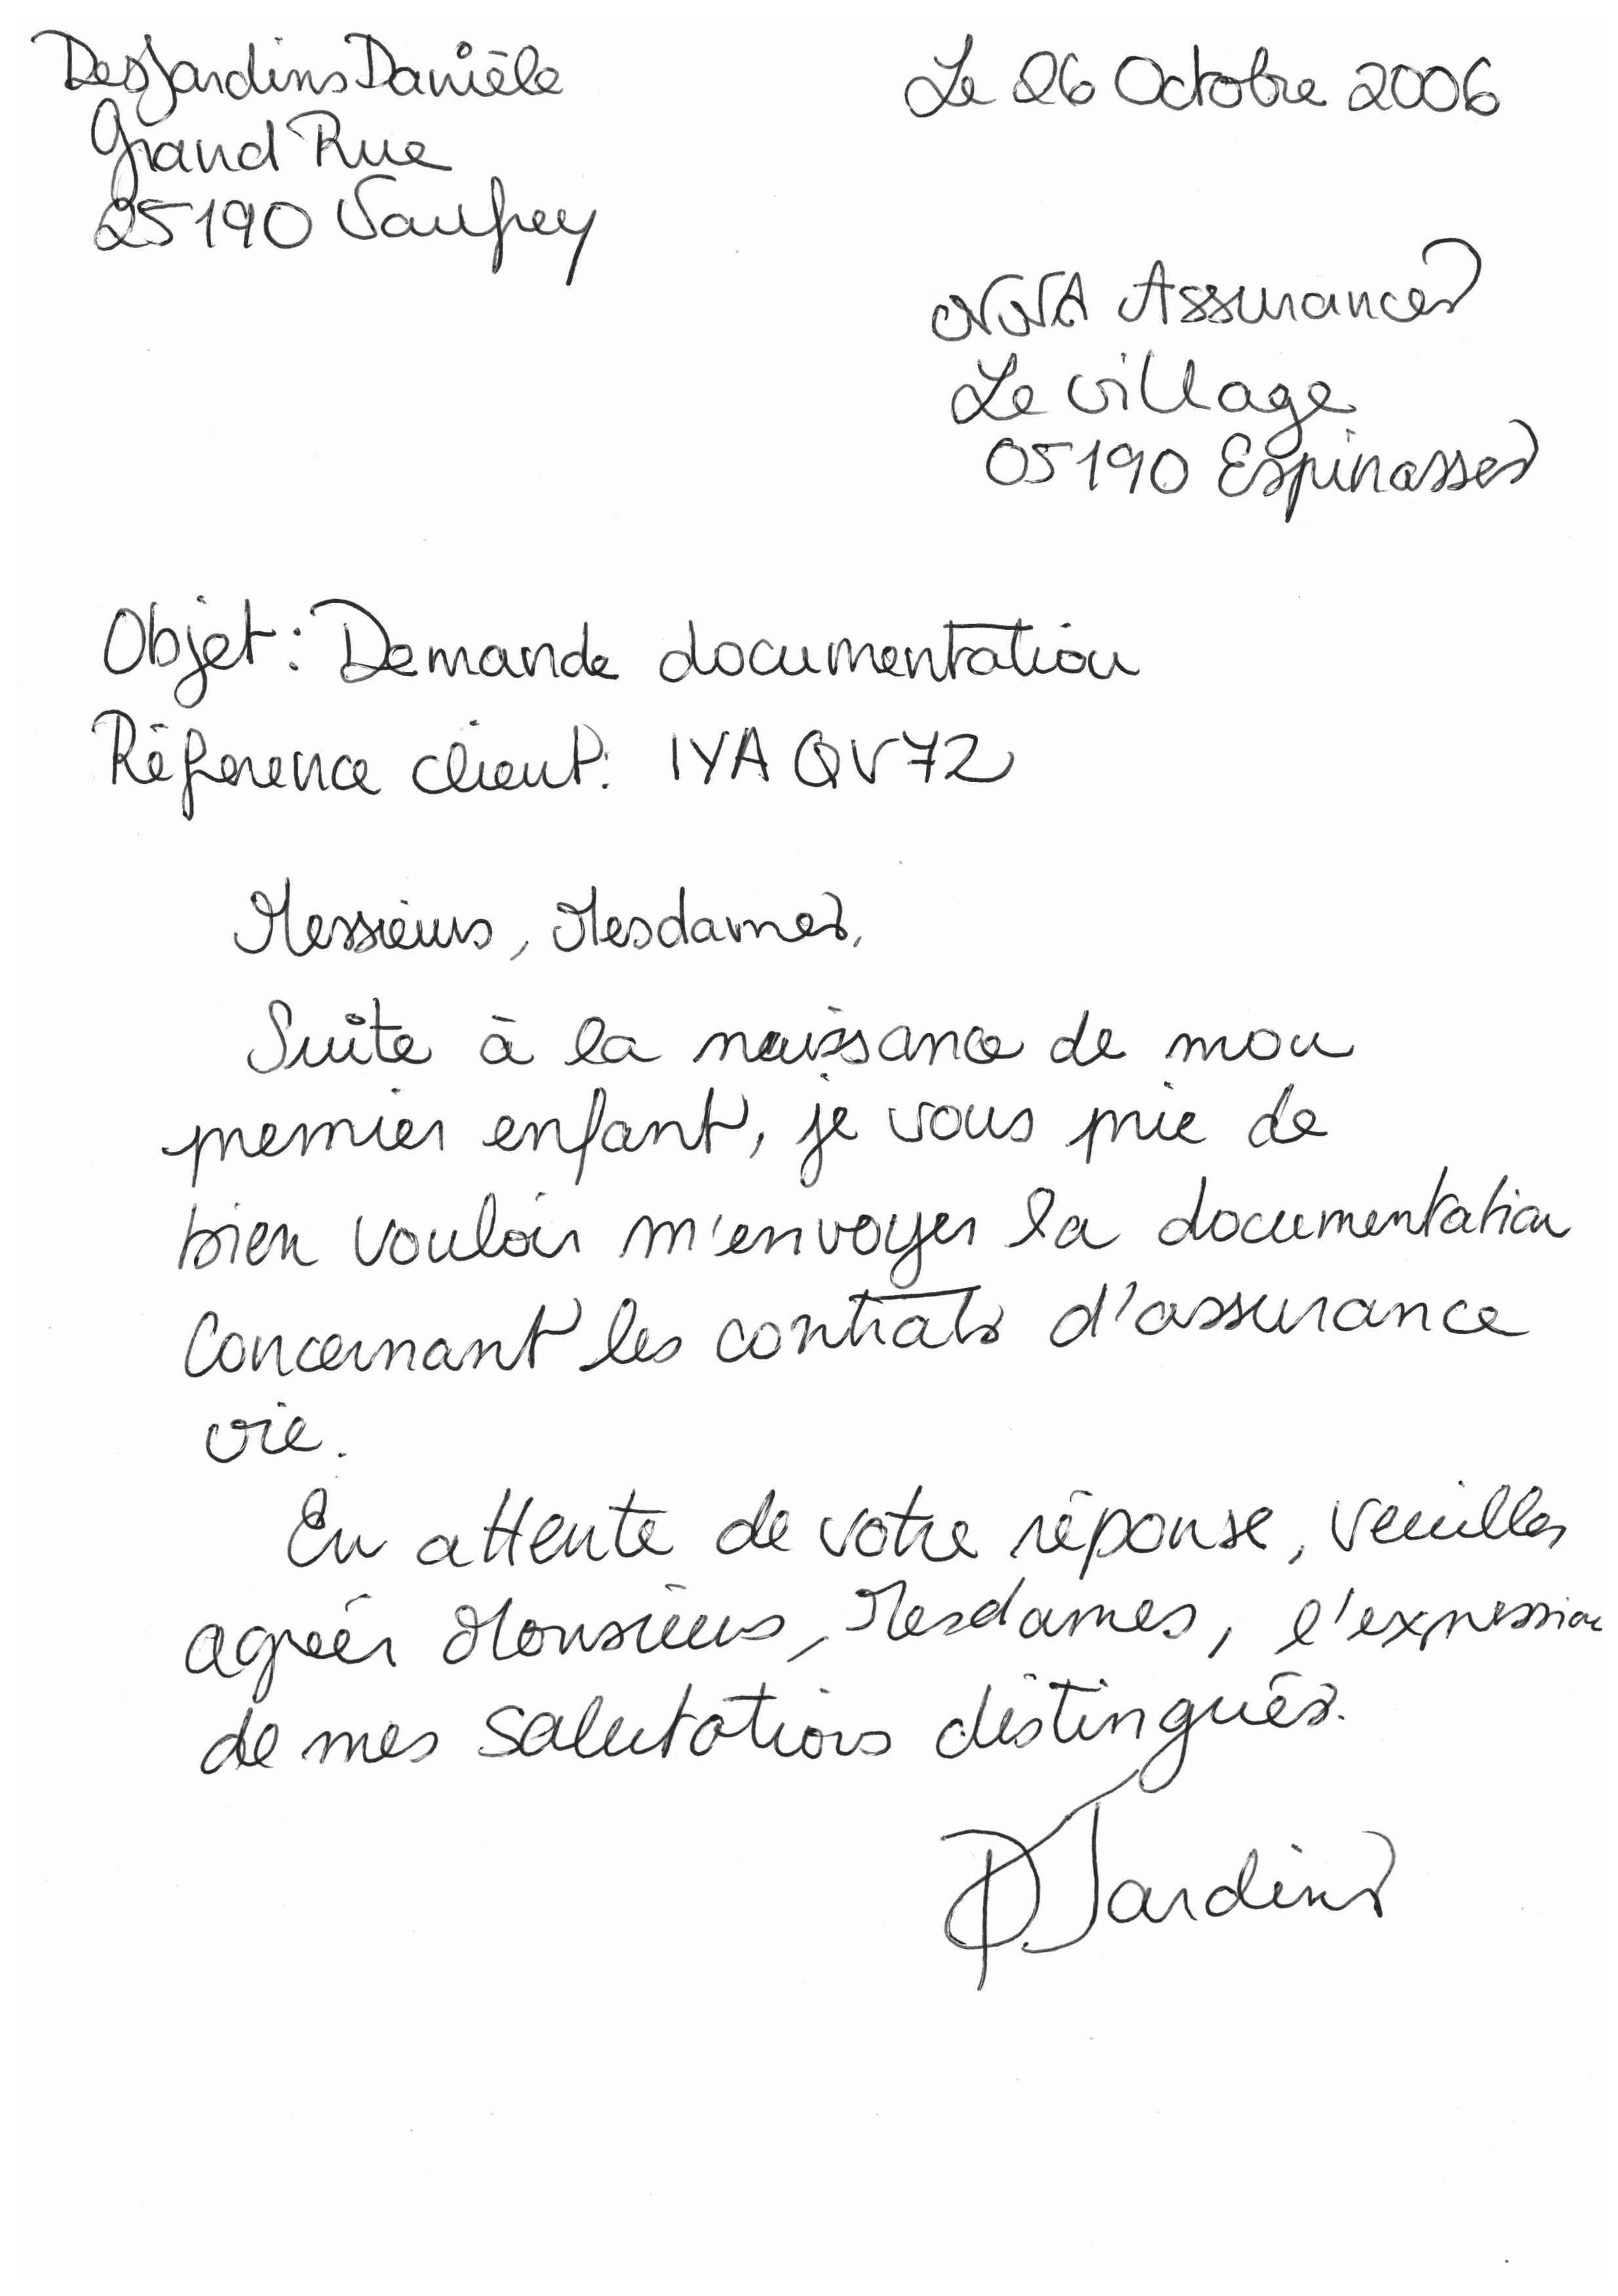 DesJardins Danièle
Le 26 Octobre 2006
Grand Rue
25190 Vaufrey
NNA Assurances
Le village
05190 Espinasses
Objet : Demande documentation
Référence client : IYA QV72
Messieurs, Mesdames,
Suite à la naissance de mon
premier enfant, je vous prie de
bien vouloir m'envoyer la documentation
Concernant les contrats d'assurance
vie.
En attente de votre réponse, veuillez
agréer Monsieurs, Mesdames, l'expression
de mes salutations distingués.
D. Jardins